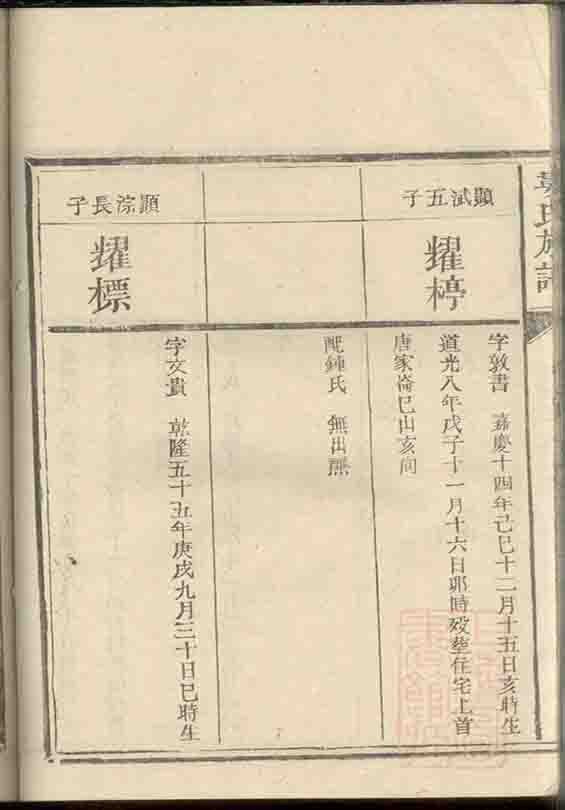 氏族譜
顯斌五子
耀椁
字敦書 嘉慶十四年己巳十二月十五日亥時生
道光八年戊子十一月十六日卯時歿塟住宅上首
唐家崙巳山亥向
配鍾氏 無出
顯淙長子
耀標
字文貴 乾隆五十五年庚戌九月三十日巳時生